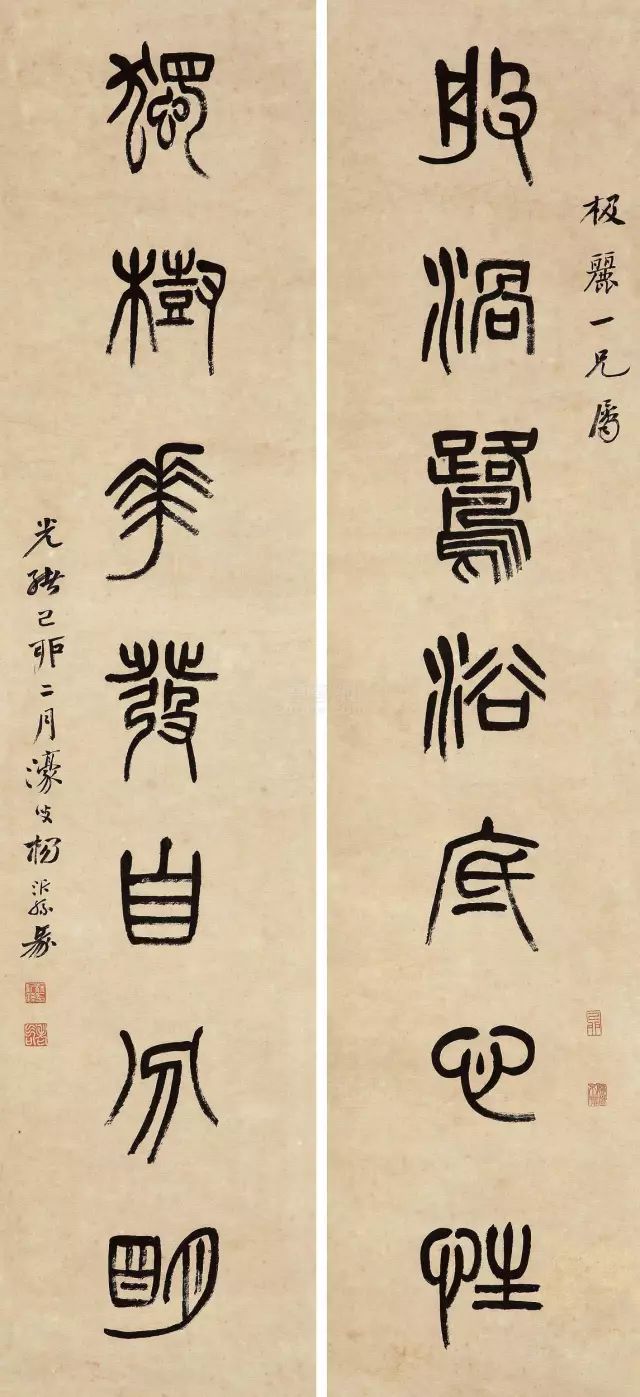 极麗一兄屬
般渦鷺浴底心性
獨樹華發自分明
光緒己卯二月濠叟楊沂孫篆